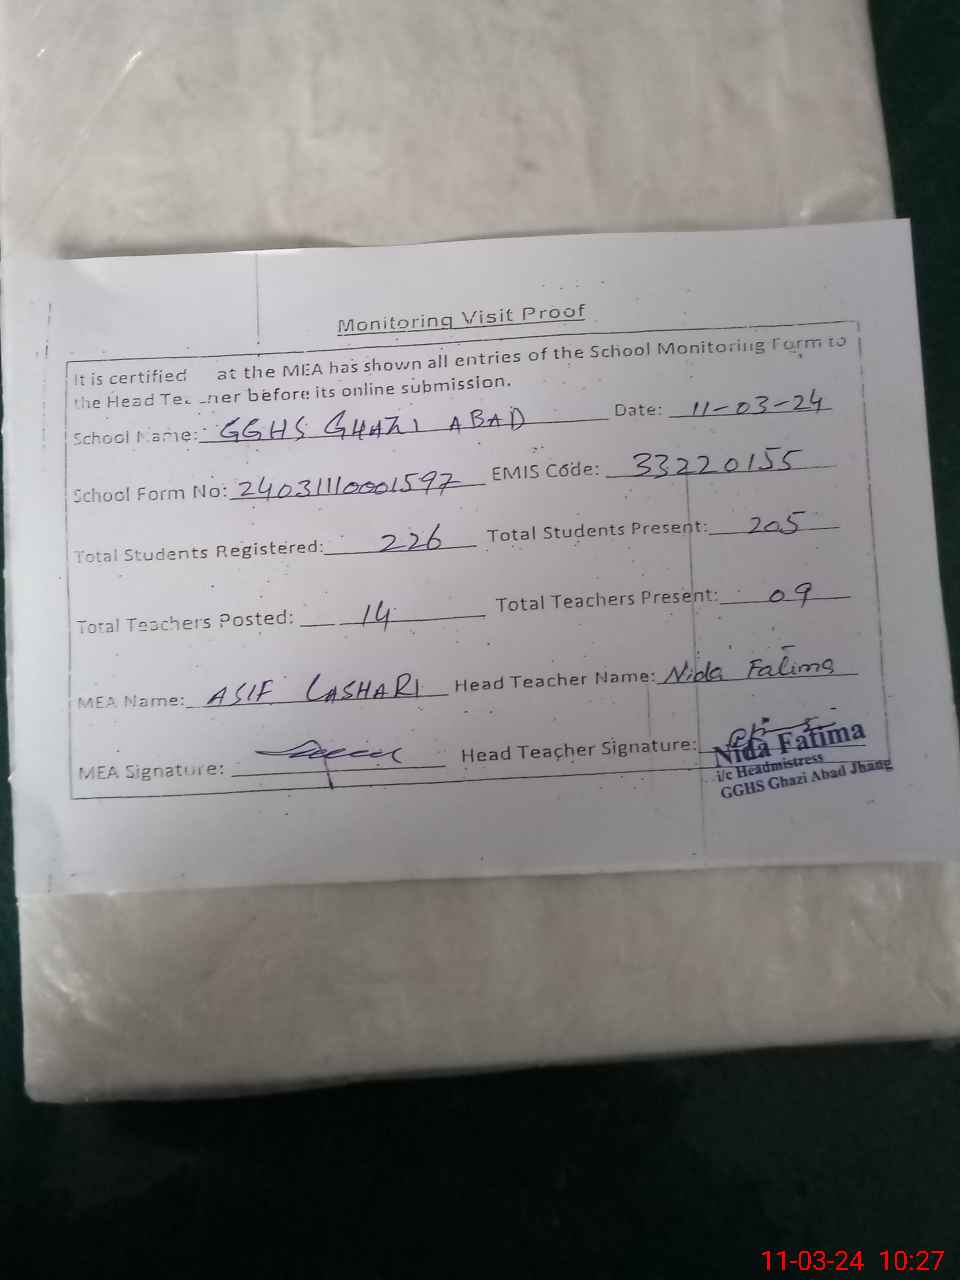 Monitoring Visit Proof
It is certified at the MEA has shown all entries of the School Monitoring Form to
the Head before its online submission.
School Name: GGHS GHAZI ABAD Date: 11-03-24
School Form No: 24031110001597 EMIS Code: 33220155
Total Students Registered: 226 Total Students Present: 205
Total Teachers Posted: 14 Total Teachers Present: 09
MEA Name: ASIF LASHARI Head Teacher Name: Nida Fatima
MEA Signature: Head Teacher Signature:
Nida Fatima
i/c Headmistress
GGHS Ghazi Abad Jhang
11-03-24 10:27